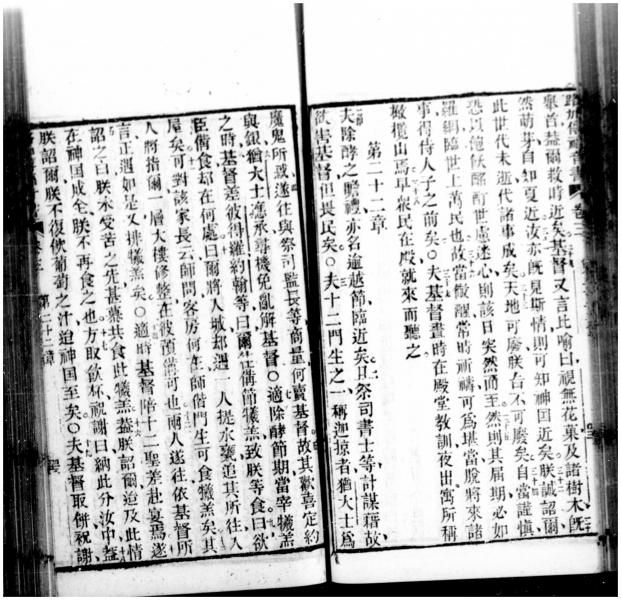 路加傳福音書 卷三
舉首葢爾救時近矣基督又言比喻曰視無花菓及諸樹木旣
然萌芽自知夏近汝亦旣見斯情則可知神国近矣朕誠詔爾
此世代未逝代諸事成矣天地可廢朕言不可廢矣自當謹愼
恐以飽飫酩酊世慮迷心則該日突然而至然則其届期必如
羅網臨世上萬民也故當儆醒常時祈禱可爲堪當脫將來諸
事得侍人子之前矣○夫基督晝時在殿堂敎訓夜出寓所稱
橄欖山焉早衆民在殿就來而聽之
第二十二章
夫除酵之瞻禮亦名逾越節臨近矣且祭司書士等計謀藉故
欲害基督但畏民矣○夫十二門生之一稱迦掠者猶大士爲
魔鬼所惑遂往與祭司監長等商量何賣基督故其歡喜定約
與銀猶大士應承尋機免亂解基督○適除酵節期當宰犧羔
之時基督差彼得羅約翰等曰爾往備節犧羔致朕等食曰欲
臣備食却在何處曰爾將入城却遇一人提水甕追其所往入
屋矣可對該家長云師問客房何在師偕門生可食犧羔矣其
人將指爾一層大樓修整在彼預備可也兩人遂往依基督所
言正遇如是又排犧羔矣○適時基督陪十二聖差赴宴焉遂
詔之曰朕未受苦之先甚冀共食此犧羔葢朕詔爾迨及此情
在神国成全朕不再食之也方取飲杯祝謝曰納此分汝中葢
朕詔爾朕不復飲葡萄之汁迨神国至矣○夫基督取餅祝謝
第二十二章